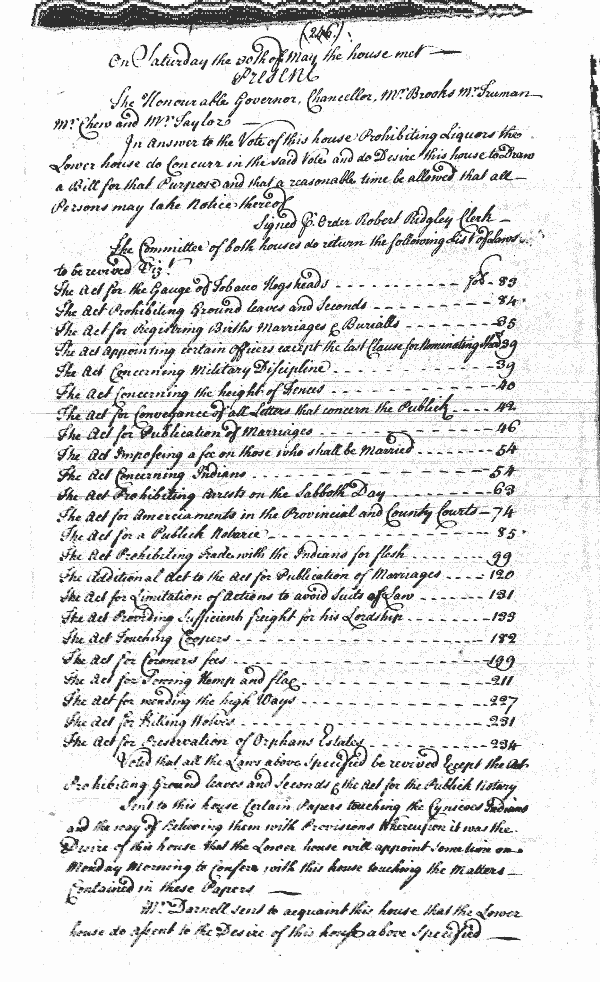 (246)
On Saturday the 20th of May the house met
Present
The Honourable Governor, Chancellor, Mr. Brooks Mr. Truman
Mr. Chew and Mr. Taylor
In Answer to the Vote of this house Prohibiting Liquors the
Lower house do Concurr in the said Vote and do Desire this house to Draw
a Bill for that Purpose and that a reasonable time be allowed that all
Persons may take Notice thereof
Signed P. Order Robert Ridgley Clerk
The Committee of both houses do return the following List of Laws
to be revived Viz.t
The Act for the Gauge of Tobacco Hogsheads fol. 83
The Act Prohibiting Ground leaves and Seconds 84
The Act for Registring Births Marriages & Burialls 35
The Act appointing certain Officers except the last Clause for Nominating 39
The Act Concerning Military Discipline 39
The Act Concerning the height of Fences 40
The Act for Conveyance of all Letters that concern the Publick 42
The Act for Publication of Marriages 46
The Act Imposeing a fee on those who shall be Married 54
The Act Concerning Indians 54
The Act Prohibiting Arrests on the Sabboth Day 63
The Act for Amerciaments in the Provincial and County Courts 74
The Act for a Publick Notarie 85
The Act Prohibiting Trade with the Indians for flesh 99
The Additional Act to the Act for Publication of Marriages 120
The Act for Limitation of Actions to avoid Suits of Law 131
The Act Providing Sufficient freight for his Lordship 133
The Act Touching Coopers 182
The Act for Coroners fees 199
The Act for Sowing Hemp and flax 211
The Act for mending the high Ways 227
The Act for Killing Wolves 231
The Act for Preservation of Orphans Estates 234
Voted that all the Laws above Specified be revived Except the Act
Prohibiting Ground leaves and Seconds & the Act for the Publick Notary
Sent to this house Certain Papers touching the Indians
and the way of Relieving them with Provisions Whereupon it was the
Desire of this house that the Lower house will appoint Sometime on
Monday Morning to Confere with this house touching the Matters
Contained in these Papers
Mr. Darnell sent to acquaint this house that the Lower
house do assent to the Desire of this house above Specified